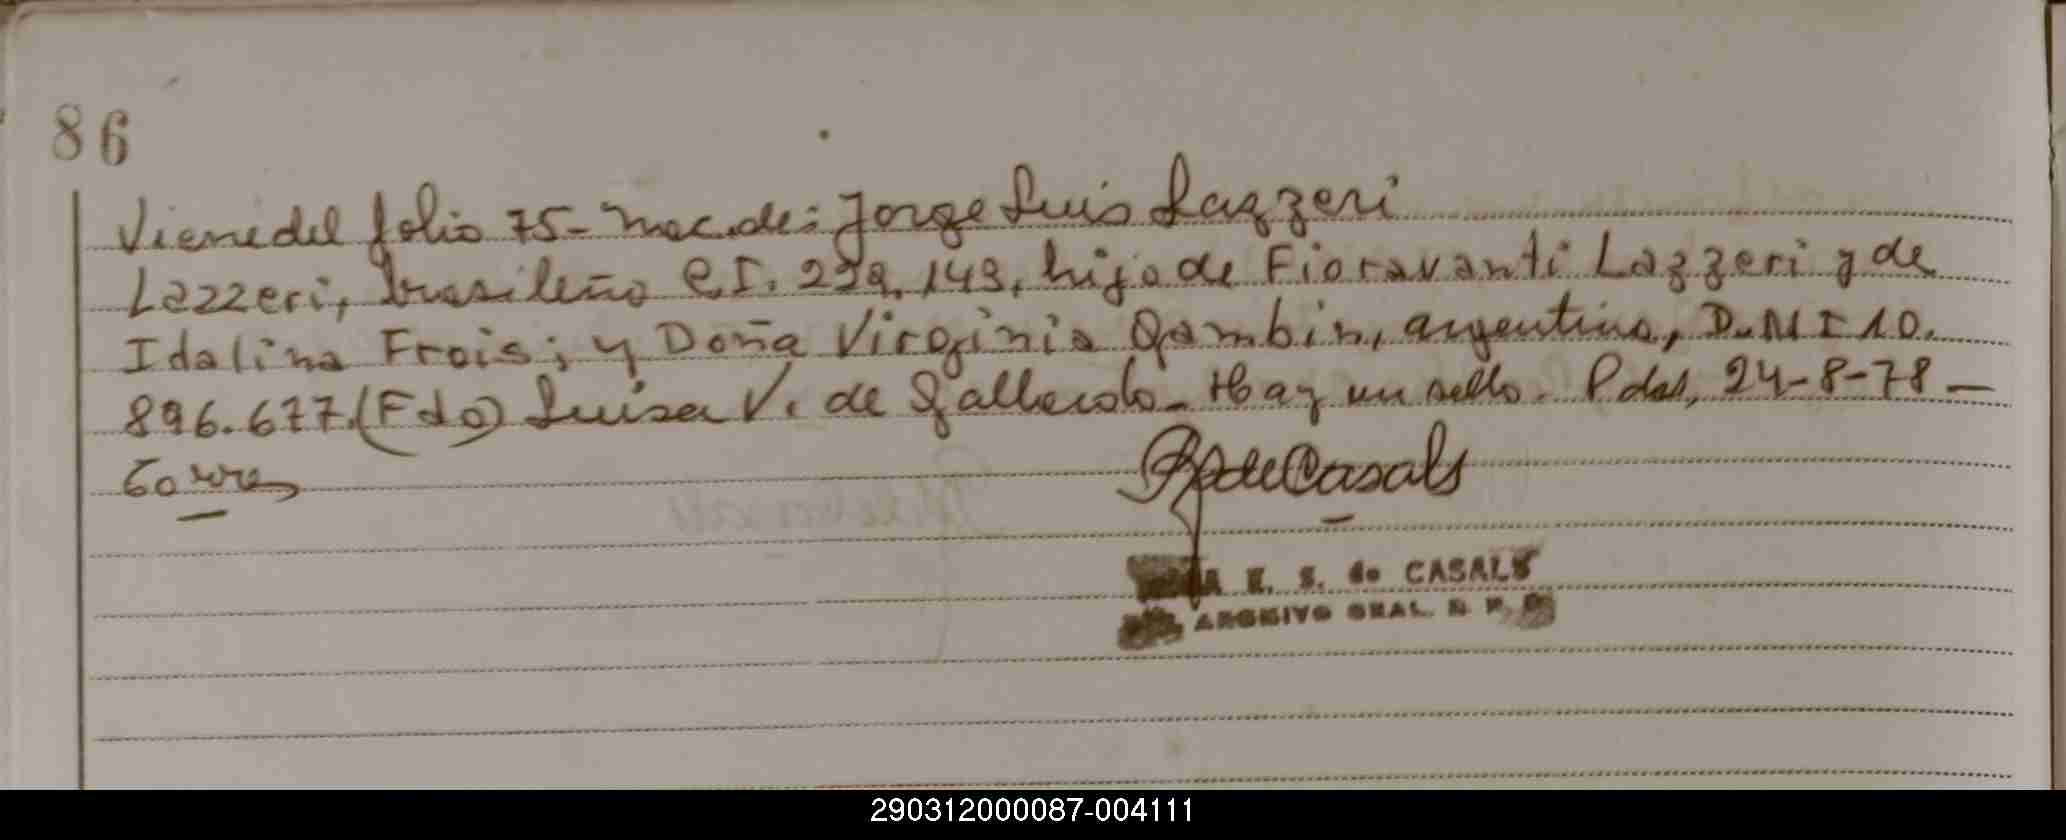 86
Viene del folio 75- nac. de: Jorge Luis Lazzeri
Lazzeri, brasileño C.I. 229.143, hijo de Fioravanti Lazzeri y de
Idalina Frois; y Doña Virginia Gambin, argentina, D.N.I 10.
896.677.(Fdo) Luisa V. de Gallardo- Hay un sello. Pdas, 24-8-78-
Torres
de Casals
E. S. de CASALS
ARCHIVO GRAL. R. P.
290312000087-004111